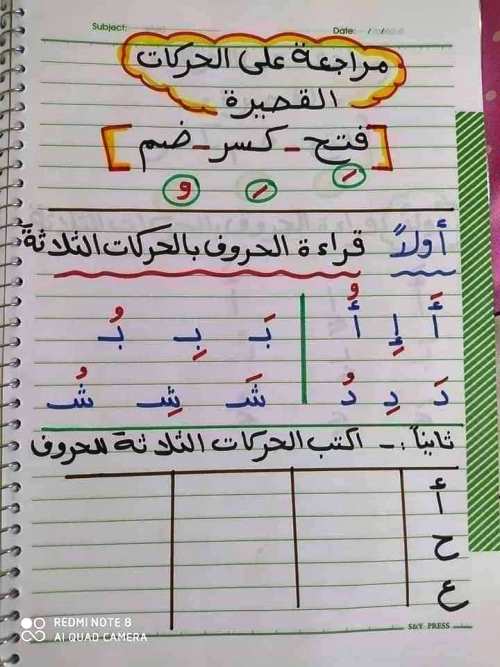 Subject:
Date:
مراجعة على الحركات
القصيرة
[ فتح - كسر - ضم ]
َ ِ ُ
أولاً قراءة الحروف بالحركات الثلاثة
أَ إِ أُ بَ بِ بُ
دَ دِ دُ شَ شِ شُ
ثانياً :- اكتب الحركات الثلاثة للحروف
أ
ح
ع
S&Y PRESS
REDMI NOTE 8
AI QUAD CAMERA